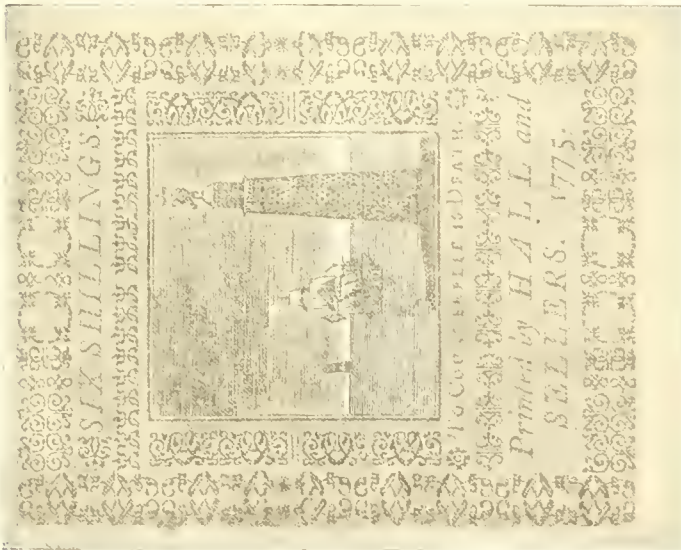 SIX SHILLINGS.
To COUNTERFEIT is DEATH.
Printed by HALL and
SELLERS. 1775.